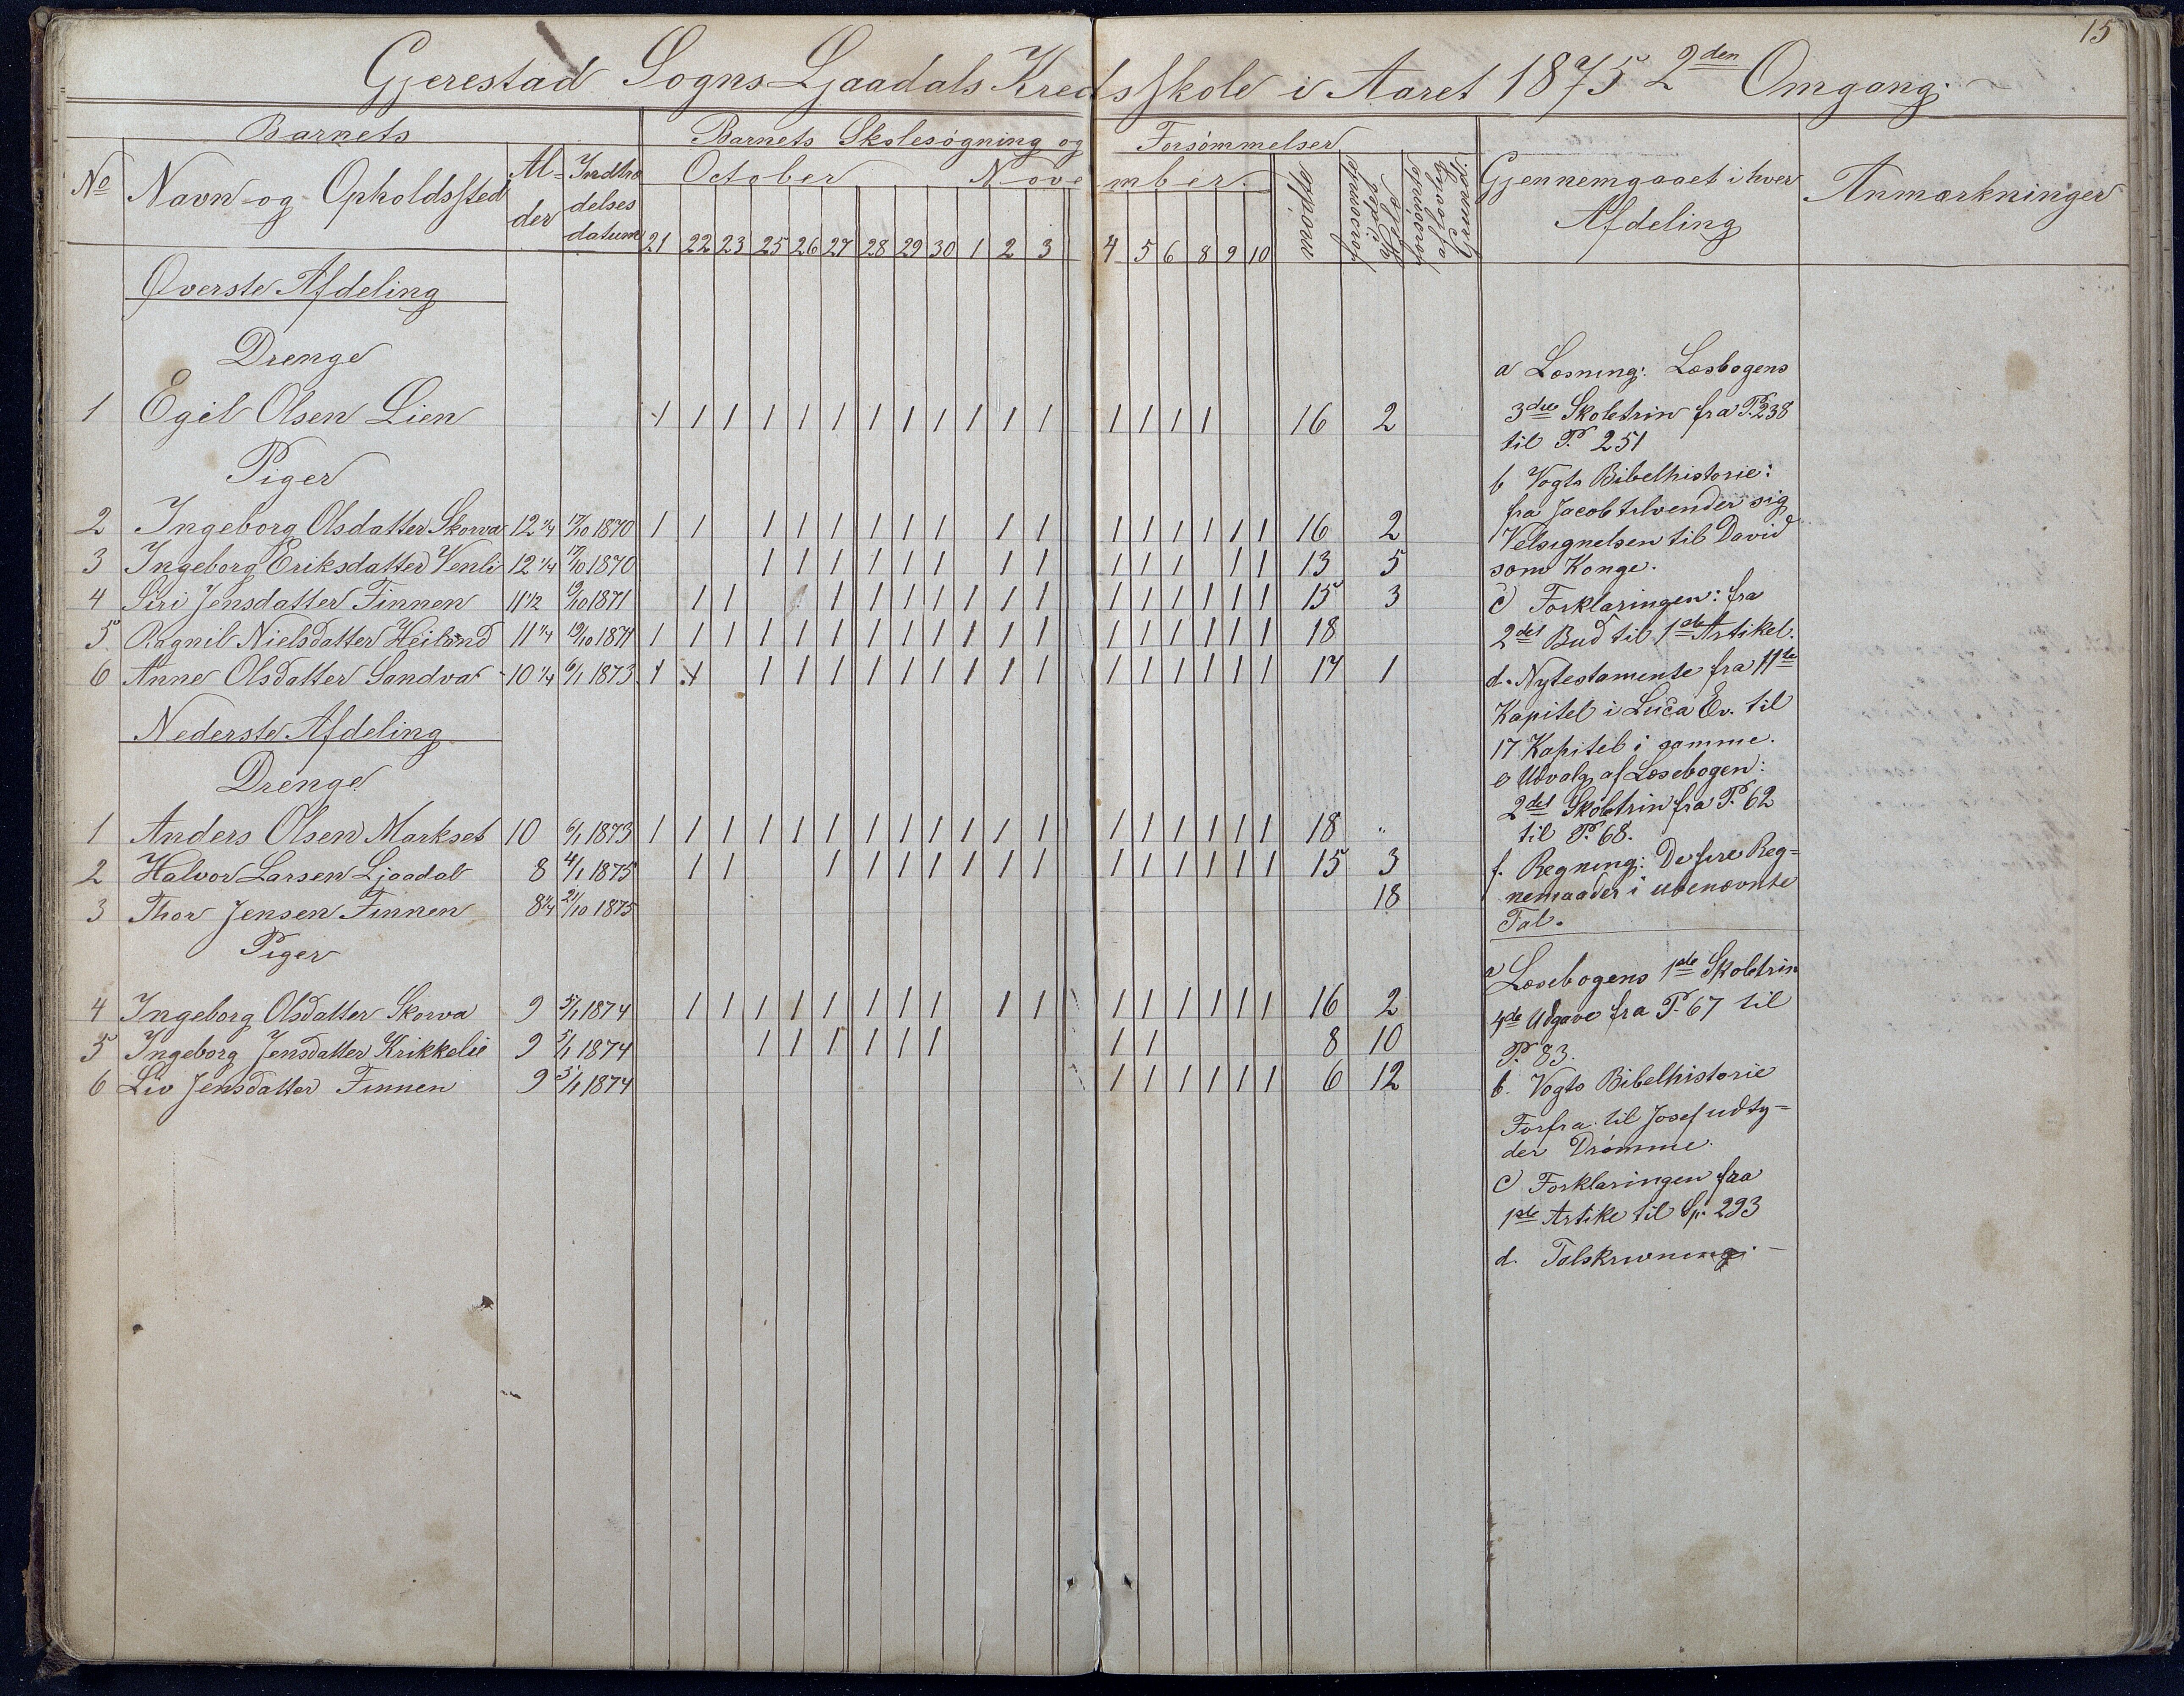 15
Gjerestad Sogns Ljaadals Kredsskole i Aaret 1875 2den Omgang.
Barnets
Barnets Skolesøgning og Forsømmelser
No
Navn og Opholdssted
Al-
der
Indtræ
delses
datum
October
November
21 22 23 25 26 27 28 29 30 1 2 3 4 5 6 8 9 10
mødte
forsømte
forsømte
af lovlig
Grund.
Gjennemgaaet i hver
Afdeling
Anmærkninger
Øverste Afdeling
Drenge
1 Egil Olsen Lien 1 1 1 1 1 1 1 1 1 1 1 1 1 1 1 1 16 2
Piger
2 Ingeborg Olsdatter Skorva 12 1/4 17/10 1870 1 1 1 1 1 1 1 1 1 1 1 1 1 1 1 1 16 2
3 Ingeborg Eriksdatter Venli 12 1/4 17/10 1870 1 1 1 1 1 1 1 1 1 1 1 1 1 13 5
4 Siri Jensdatter Finnen 11 1/2 19/10 1871 1 1 1 1 1 1 1 1 1 1 1 1 1 1 1 15 3
5 Ragnil Nielsdatter Heiland 11 1/4 19/10 1871 1 1 1 1 1 1 1 1 1 1 1 1 1 1 1 1 1 1 18
6 Anne Olsdatter Sandva 10 1/4 6/1 1873 1 1 1 1 1 1 1 1 1 1 1 1 1 1 1 1 1 17 1
Nederste Afdeling
Drenge
1 Anders Olsen Markset 10 6/1 1873 1 1 1 1 1 1 1 1 1 1 1 1 1 1 1 1 1 1 18 "
2 Halvor Larsen Ljaadal 8 4/1 1875 1 1 1 1 1 1 1 1 1 1 1 1 1 1 1 15 3
3 Thor Jensen Finnen 8 1/4 21/10 1875 18
Piger
4 Ingeborg Olsdatter Skorva 9 5/1 1874 1 1 1 1 1 1 1 1 1 1 1 1 1 1 1 1 16 2
5 Ingeborg Jensdatter Krikkelie 9 5/1 1874 1 1 1 1 1 1 1 1 8 10
6 Liv Jensdatter Finnen 9 5/1 1874 1 1 1 1 1 1 6 12
a Læsning: Læsbogens
3die Skoletrin fra P. 238
til P. 251
b Vogts Bibelhistorie:
fra Jacob tilvender sig
Velsignelsen til David
som Konge.
c Forklaringen: fra
2det Bud til 1ste Artikel.
d. Nytestamente fra 11te
Kapitel i Luca Ev. til
17 Kapitel i samme.
e Udvalg af Læsebogen:
2det Skoletrin fra P. 62
til P. 68.
f. Regning: De fire Reg-
nemaader i ubenævnte
Tal.
a Læsebogens 1ste Skoletrin
4de Udgave fra P. 67 til
P. 83.
b. Vogts Bibelhistorie
Forfra til Josef udty-
der Drømme.
c Forklaringen fra
1ste Artike til Sp. 293
d. Talskrivning. -